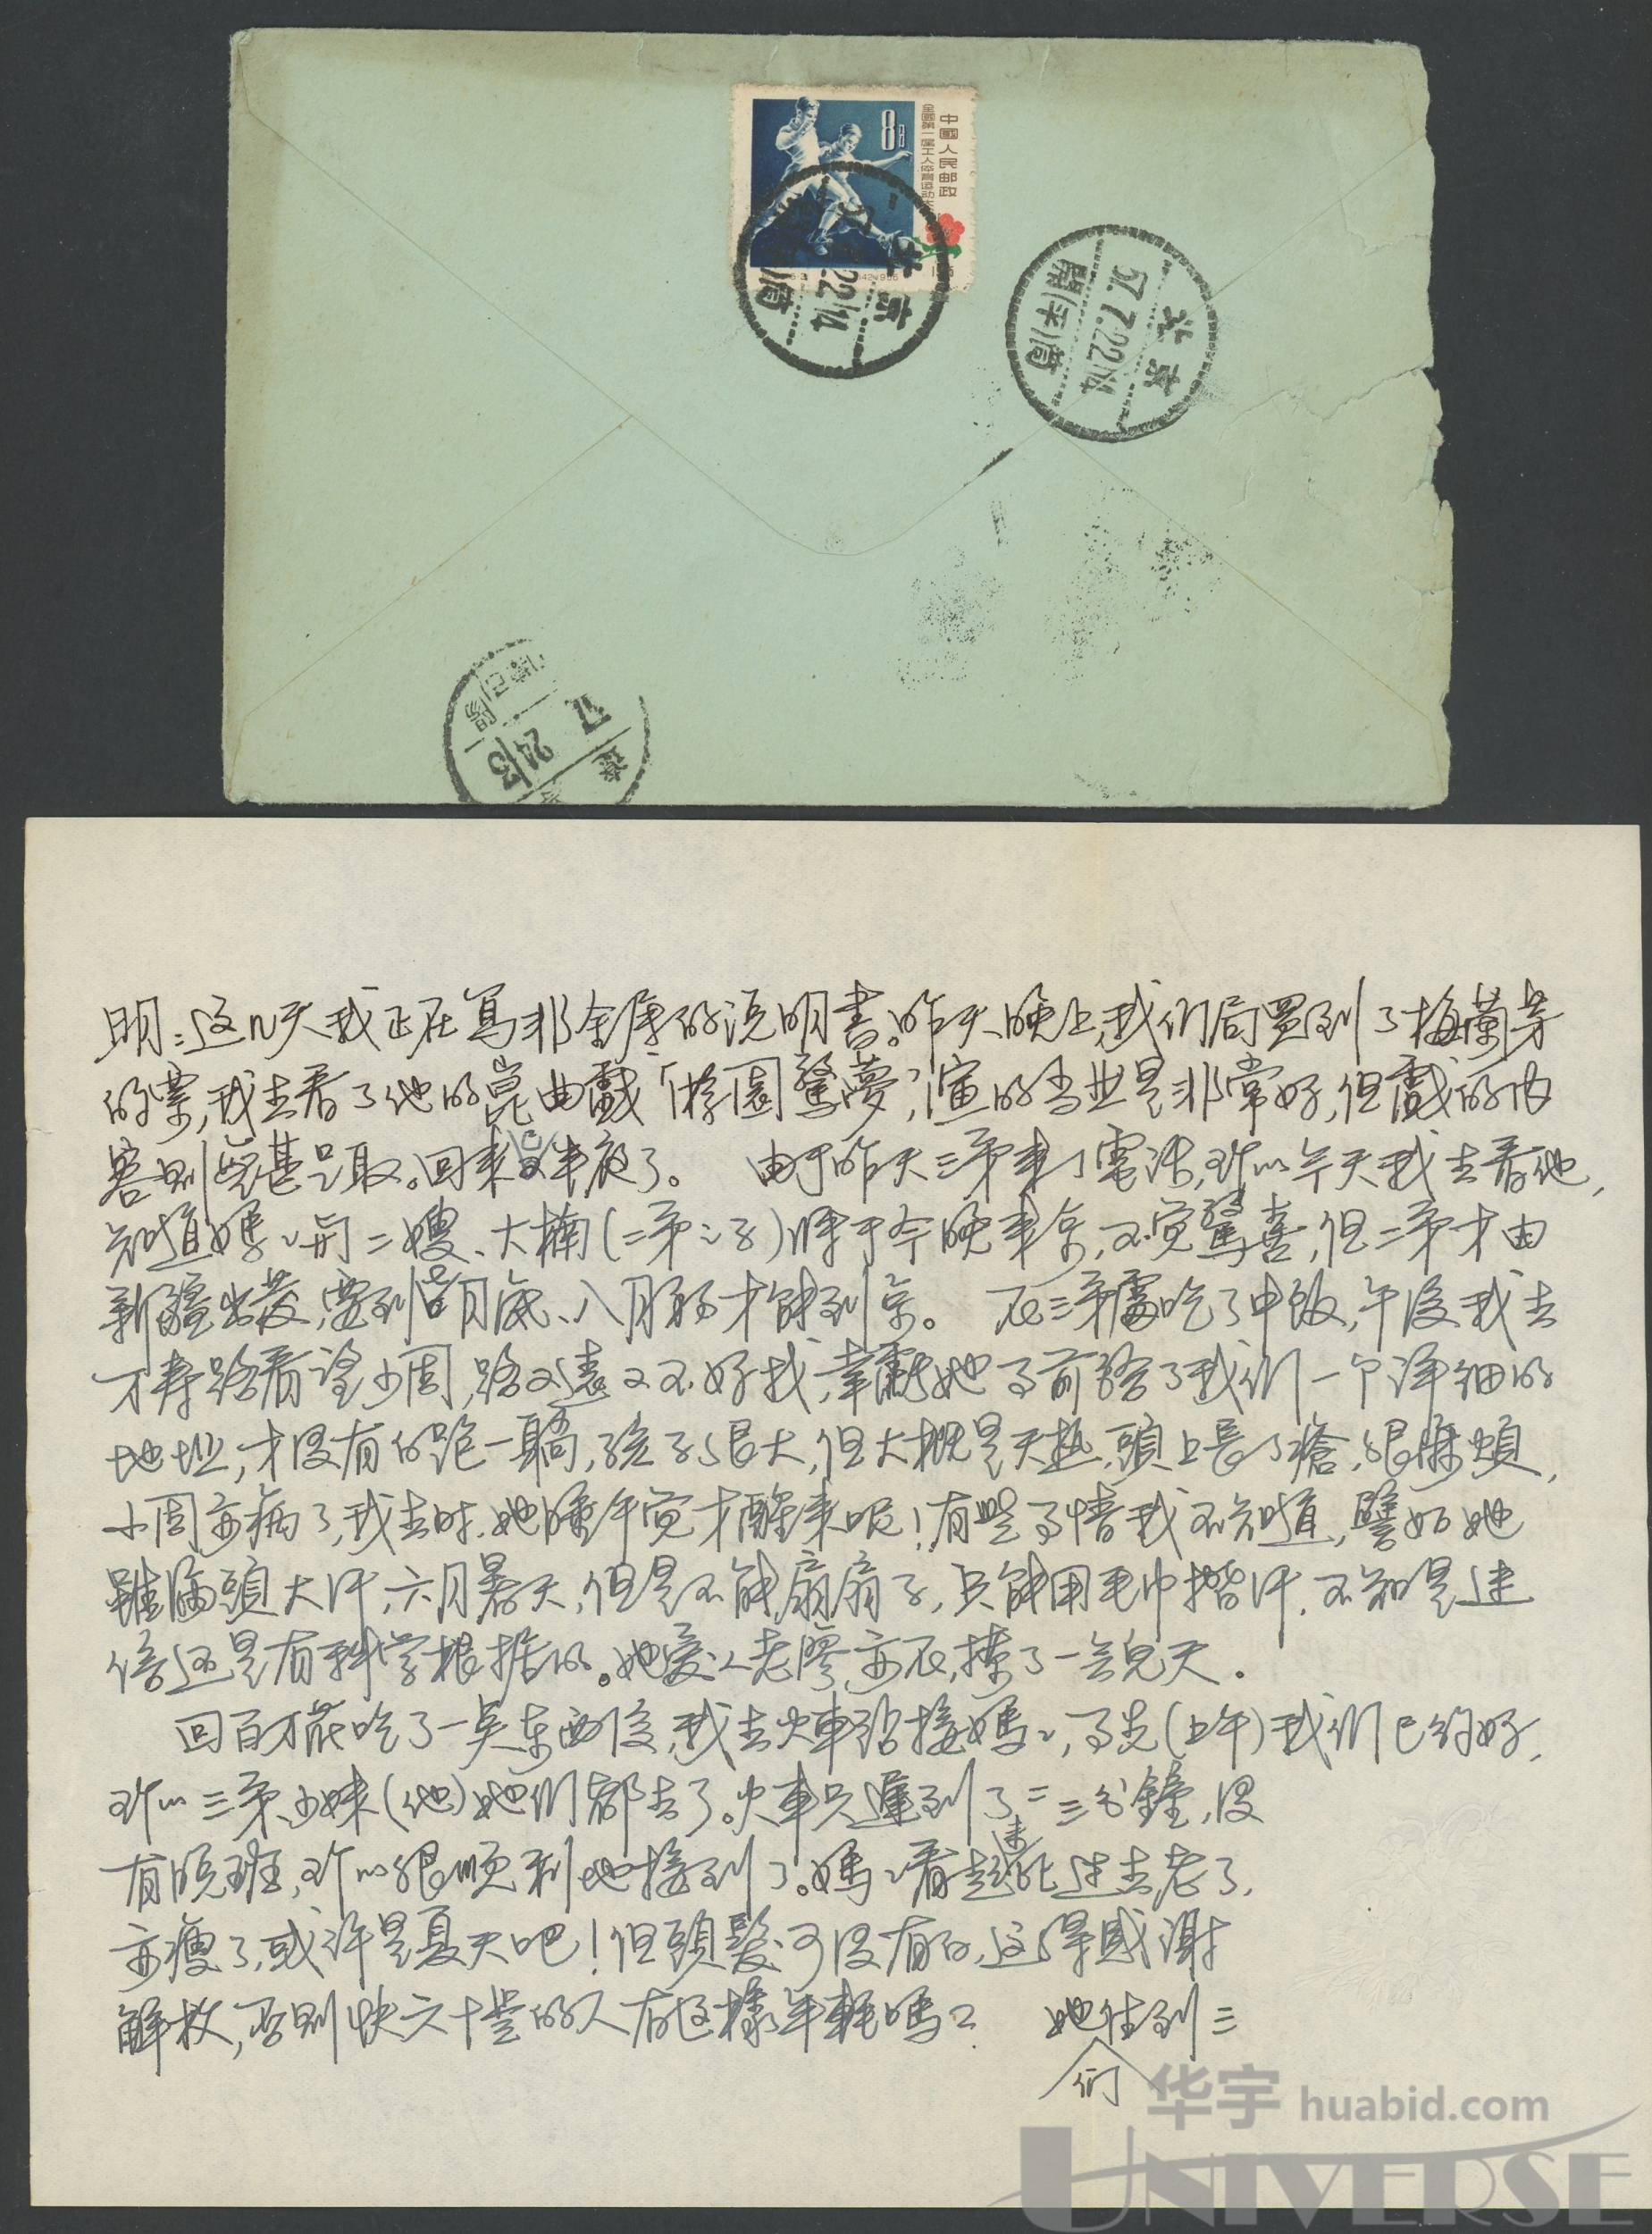 中國人民邮政
全國第一届工人体育运动大会
8分
北京
22.14
北京
57.7.22.14
開平
24
明：这几天我正在寫非金庫的说明書。昨天晚上，我们局買到了梅蘭芳
的票，我去看了他的崑曲戲「游園驚夢」，演的当然是非常好，但戲的内
容则無甚足取。回来已半夜了。 由于昨天三弟来了電話，所以今天我去看他，
知道媽媽和二嫂、大楠(二弟之子)将于今晚来京，不觉驚喜，但二弟才由
新疆出發，要到月底、八月初才能到京。 在三弟處吃了中飯，午後我去
万寿路看望小周，路又遠又不好找，幸虧她事前给了我们一个详细的
地址，才没有白跑一躺，孩子很大，但大概是天热，頭上長了瘡，很麻煩，
小周亦病了，我去时，她睡午觉才醒来呢！有些事情我不知道，譬如她
雖满頭大汗，六月暑天，但是不能扇扇子，只能用毛巾揩汗，不知是迷
信还是有科学根据的。她爱人老廖亦在，擦了一会兒天。
回百万莊吃了一点东西后，我去火車站接媽媽，事先(上午)我们已约好，
所以三弟、小妹(他)她们都去了。火車只遲到了二三分鐘，没
有晚班，所以很顺利地接到了。媽媽看起来比过去老了，
亦瘦了，或许是夏天吧！但頭髮可没有白，这得感谢
解放，否则快六十岁的人有这樣年輕嗎？ 她们住到三
华宇 huabid.com
UNIVERSE